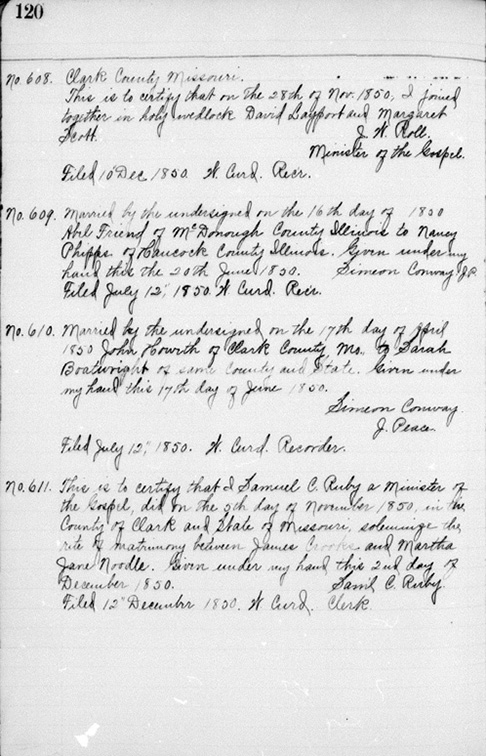 120
No. 608. Clark County Missouri.
This is to certify that on the 28th of Nov. 1850, I joined
together in holy wedlock David Layport and Margaret
Scott.
J. W. Roll.
Minister of the Gospel.
Filed 10 Dec 1850. W. Curd. Recr.
No. 609. Married by the undersigned on the 16th day of 1850
Abil Friend of McDonough County Illinois to Nancy
Phipps of Hancock County Illinois. Given under my
hand this the 20th June 1850. Simeon Conway J.P.
Filed July 12", 1850. W Curd. Recr.
No. 610. Married by the undersigned on the 17th day of April
1850 John Howith of Clark County, Mo., to Sarah
Boatwright of same County and State. Given under
my hand this 17th day of June 1850.
Simeon Conway
J. Peace.
Filed July 12", 1850. W. Curd. Recorder.
No. 611. This is to certify that I Samuel C. Ruby a Minister of
the Gospel, did on the 5th day of November 1850, in the
County of Clark and State of Missouri, solemnize the
rite of matrimony between James Crooks and Martha
Jane Noodle. Given under my hand this 2nd day of
December 1850. Saml C. Ruby.
Filed 12" December 1850. W Curd. Clerk.